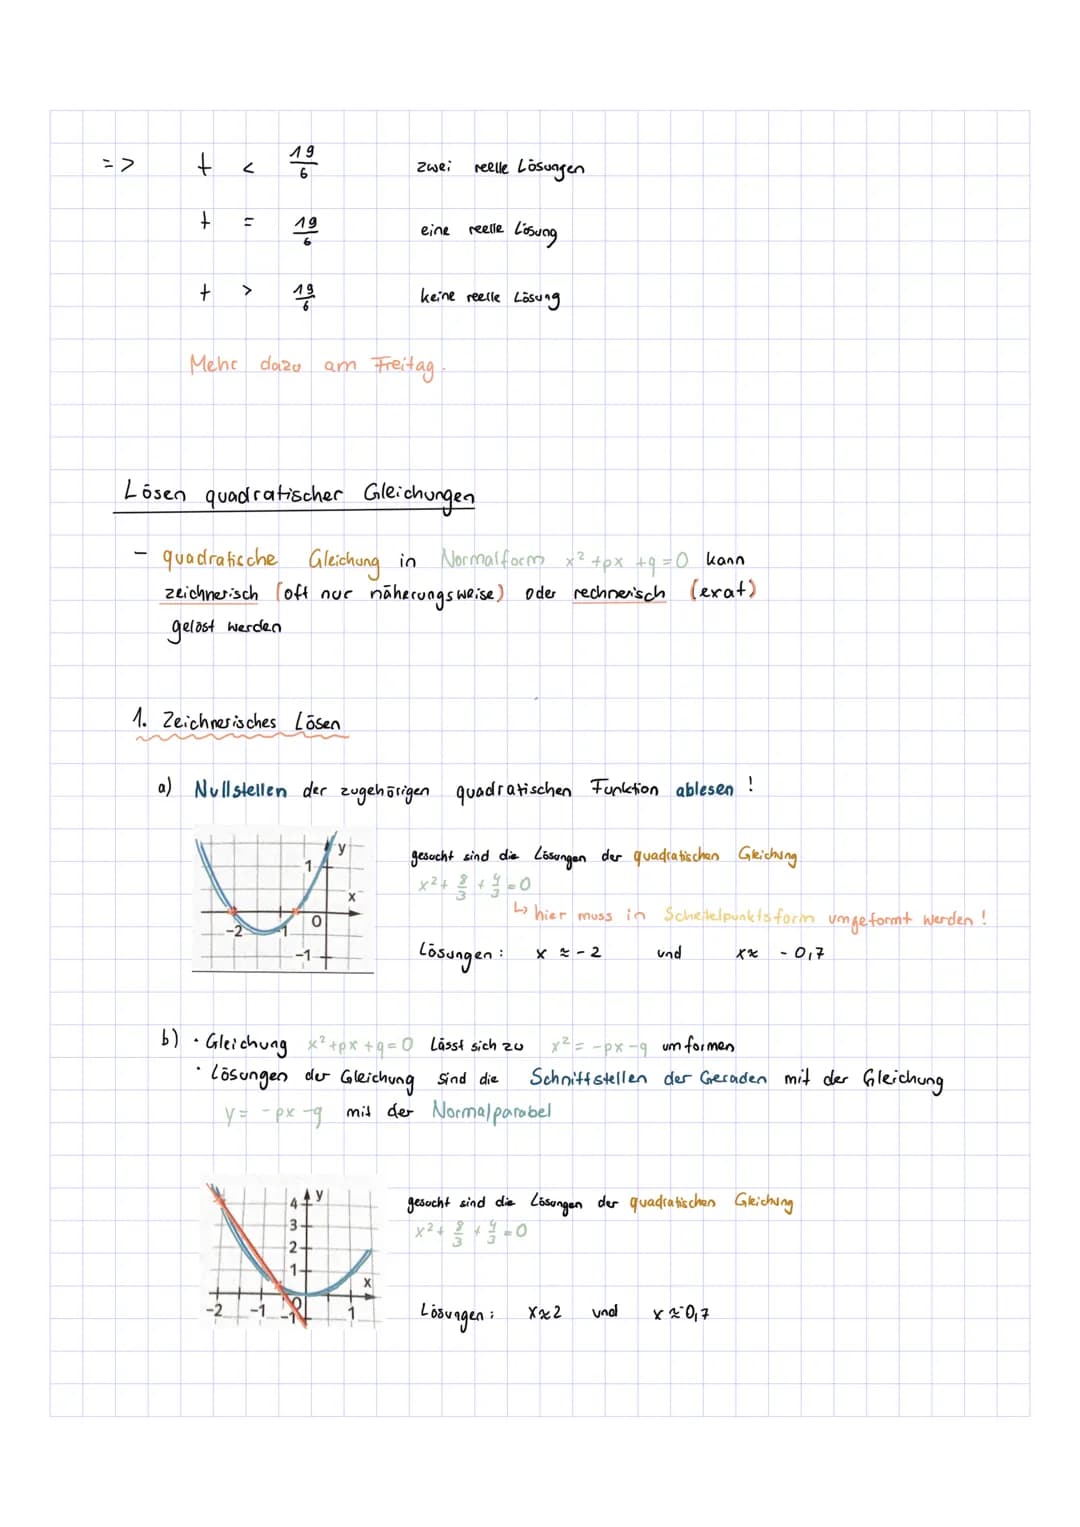 => t < 19/6 zwei reelle Lösungen
t = 19/6 eine reelle Lösung
t > 19/6 keine reelle Lösung
Mehr dazu am Freitag.
Lösen quadratischer Gleichungen
- quadratische Gleichung in Normalform x² + px + q = 0 kann
zeichnerisch (oft nur näherungsweise) oder rechnerisch (exat)
gelöst werden
1. Zeichnerisches Lösen
a) Nullstellen der zugehörigen quadratischen Funktion ablesen !
y
1
x
0
-2
-1
-1
gesucht sind die Lösungen der quadratischen Gleichung
x² + 8/3 + 4/3 = 0
↳ hier muss in Scheitelpunktsform umgeformt werden !
Lösungen : x ≈ -2 und x ≈ -0,7
b) · Gleichung x² + px + q = 0 lässt sich zu x² = -px - q umformen
· Lösungen der Gleichung sind die Schnittstellen der Geraden mit der Gleichung
y = -px - q mit der Normalparabel
y
4
3
2
1
x
-2
-1
0
1
-1
gesucht sind die Lösungen der quadratischen Gleichung
x² + 8/3 + 4/3 = 0
Lösungen : x ≈ 2 und x ≈ -0,7